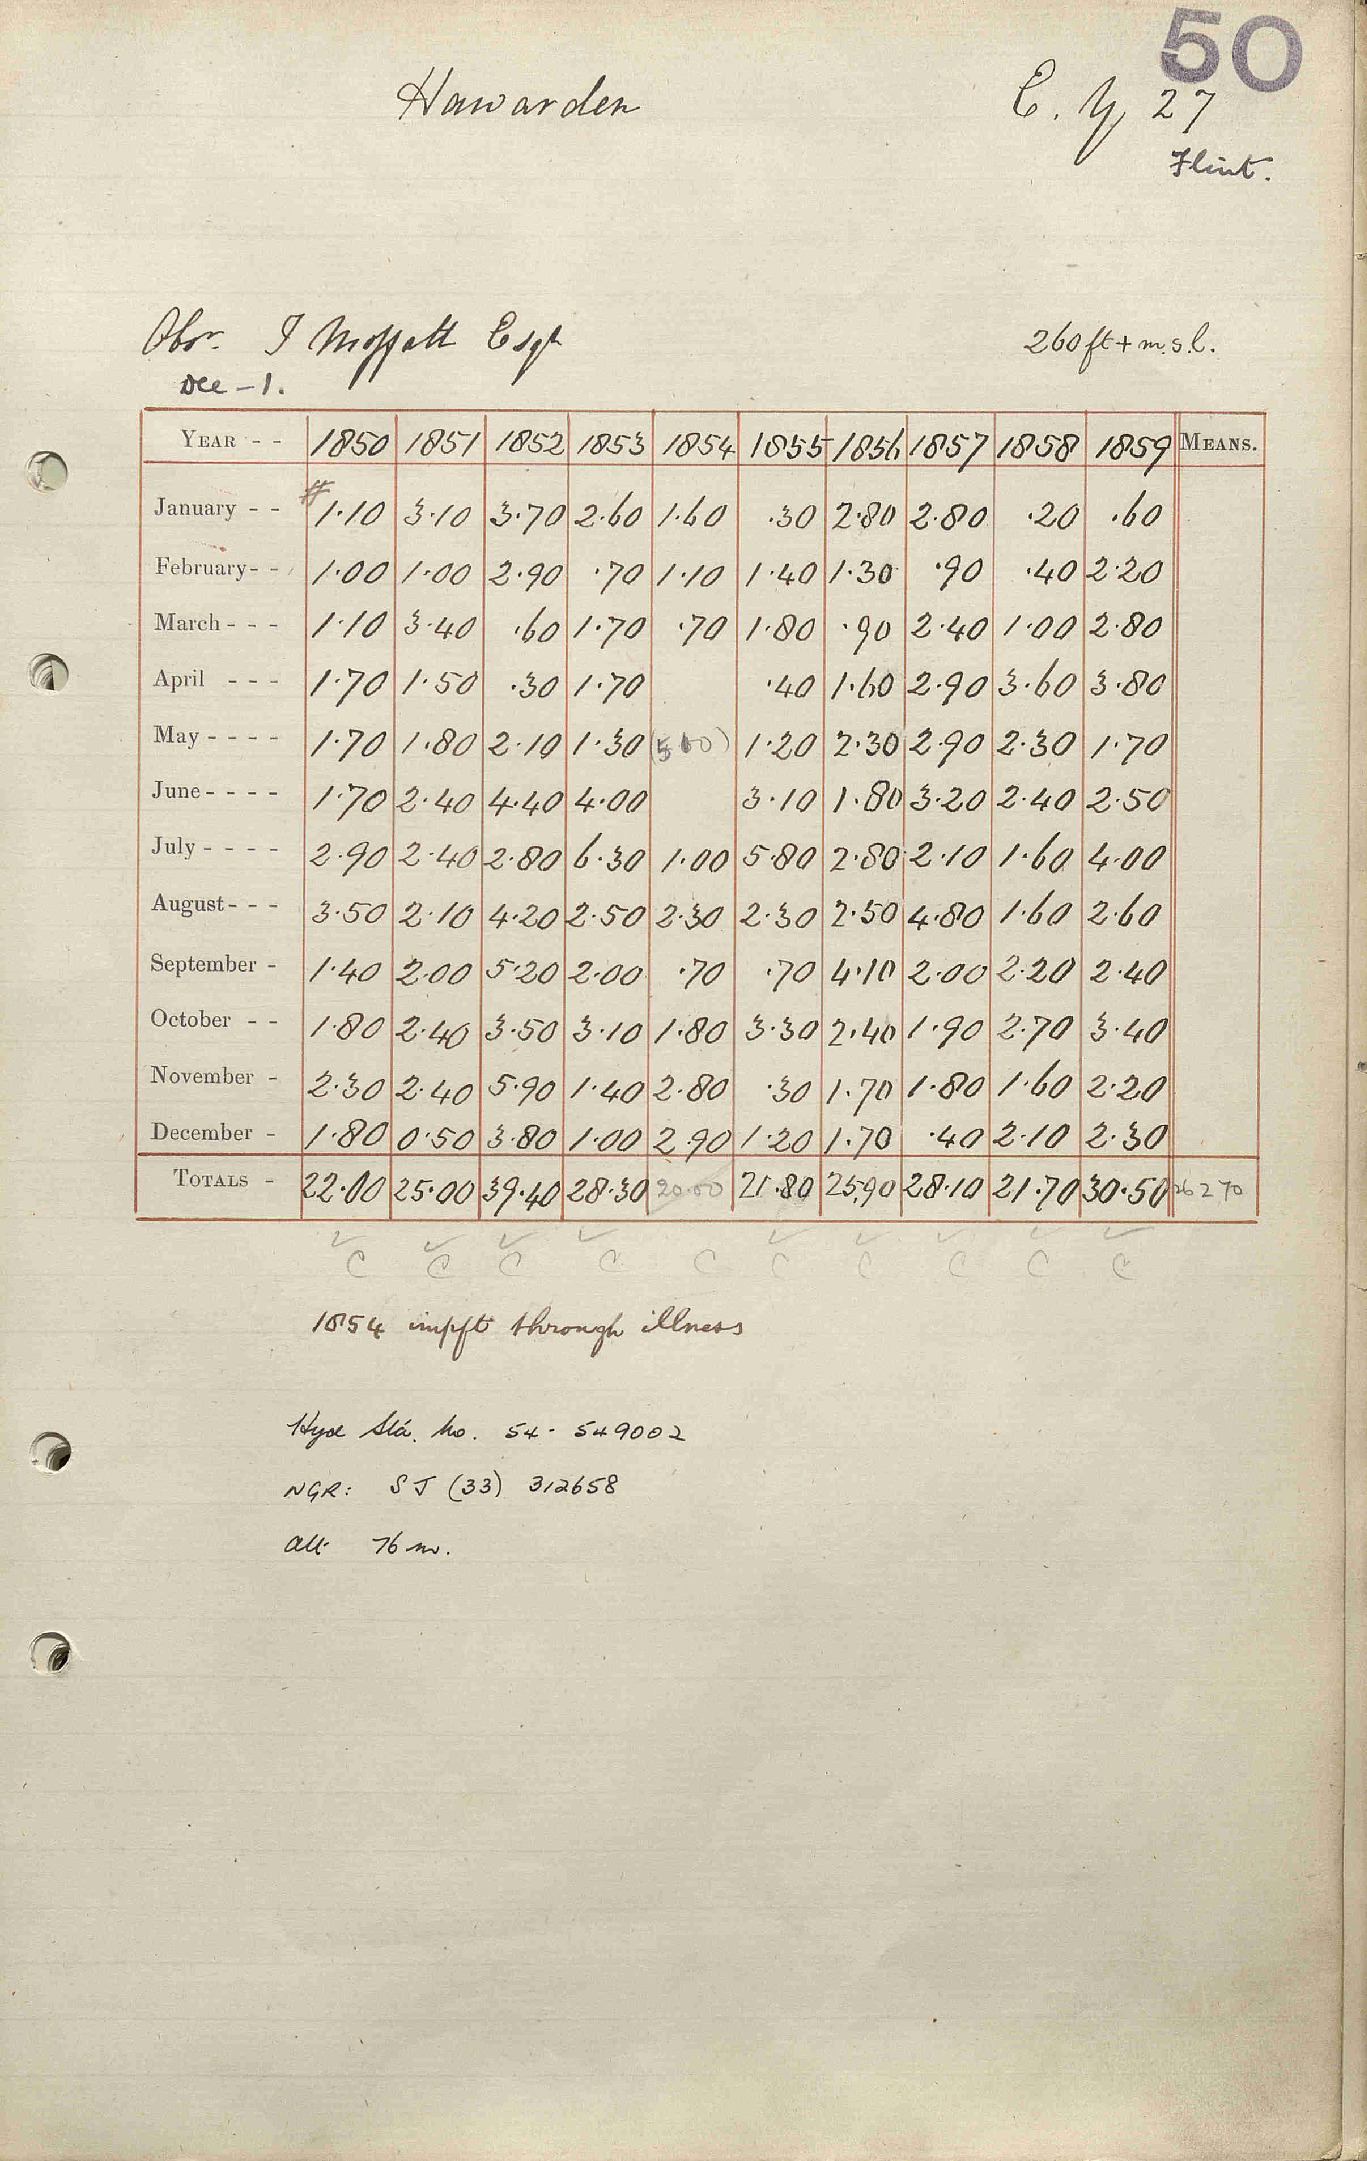 50
Hawarden C. Y, 27
Flint.
Obsr. J Moffatt Esqr 260 ft + m.s.l.
Dec - 1.
YEAR - - 1850 1851 1852 1853 1854 1855 1856 1857 1858 1859 MEANS.
January - - # 1.10 3.10 3.70 2.60 1.60 .30 2.80 2.80 .20 .60
February - - 1.00 1.00 2.90 .70 1.10 1.40 1.30 .90 .40 2.20
March - - - 1.10 3.40 .60 1.70 .70 1.80 .90 2.40 1.00 2.80
April - - - 1.70 1.50 .30 1.70 .40 1.60 2.90 3.60 3.80
May - - - - 1.70 1.80 2.10 1.30 (5.00) 1.20 2.30 2.90 2.30 1.70
June - - - - 1.70 2.40 4.40 4.00 3.10 1.80 3.20 2.40 2.50
July - - - - 2.90 2.40 2.80 6.30 1.00 5.80 2.80 2.10 1.60 4.00
August - - - 3.50 2.10 4.20 2.50 2.30 2.30 2.50 4.80 1.60 2.60
September - 1.40 2.00 5.20 2.00 .70 .70 4.10 2.00 2.20 2.40
October - - 1.80 2.40 3.50 3.10 1.80 3.30 2.40 1.90 2.70 3.40
November - 2.30 2.40 5.90 1.40 2.80 .30 1.70 1.80 1.60 2.20
December - 1.80 0.50 3.80 1.00 2.90 1.20 1.70 .40 2.10 2.30
TOTALS - 22.00 25.00 39.40 28.30 20.00 21.80 25.90 28.10 21.70 30.50 26270
C C C C C C C C C C
1854 impft through illness
Hyd Sta. No. 54 - 549002
NGR: SJ (33) 312658
Alt 76 m.